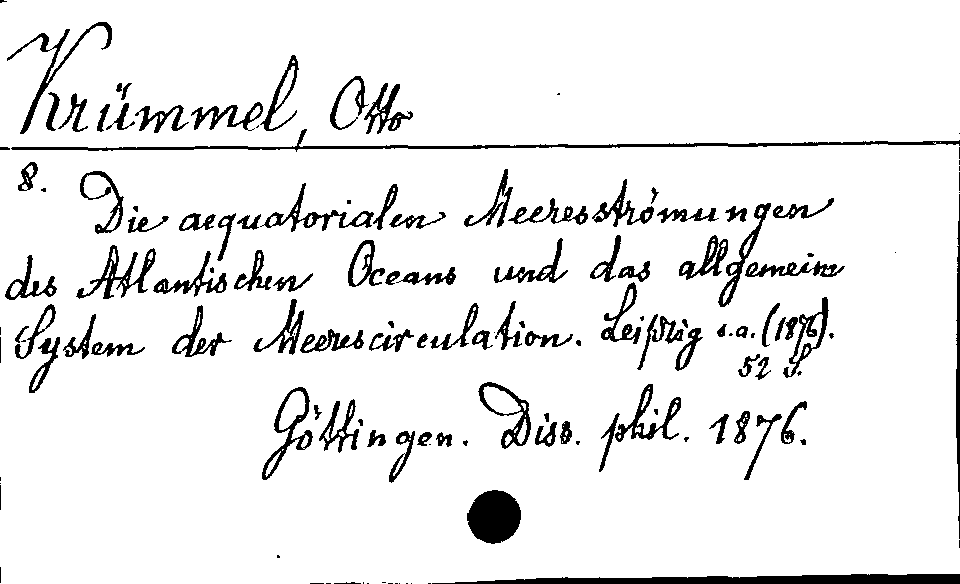 Krümmel, Otto
8.
Die aequatorialen Meeresströmungen
des Atlantischen Oceans und das allgemeine
System der Meerescirculation. Leipzig s.a. (1876).
52 S.
Göttingen. Diss. phil. 1876.